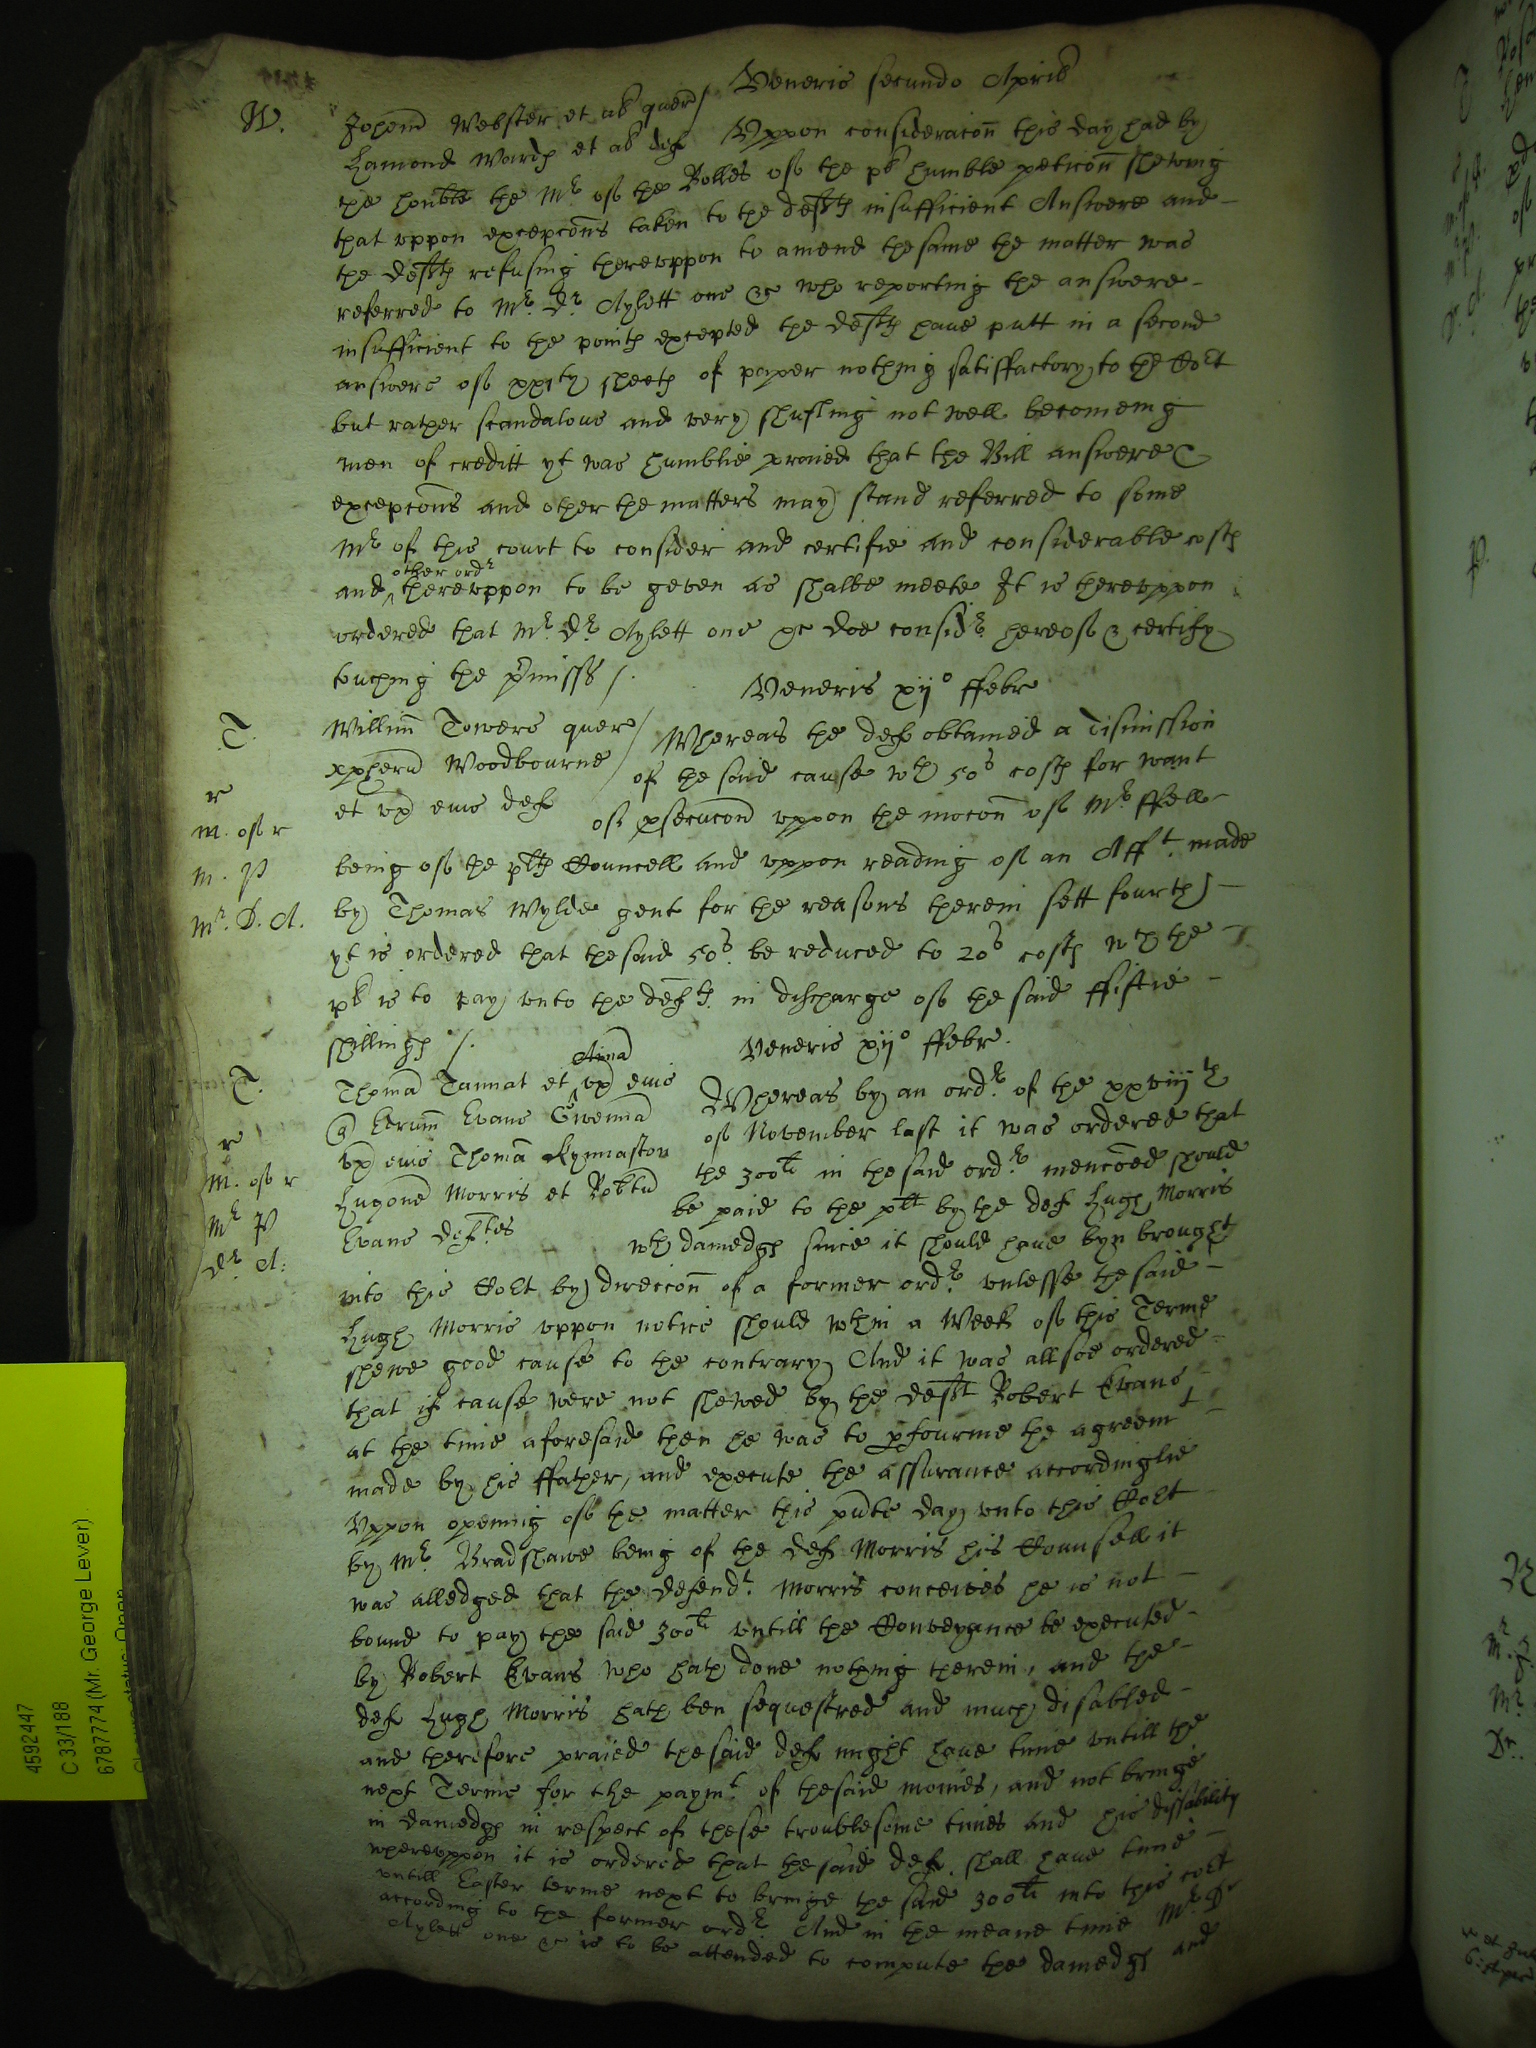 Veneris secundo Aprilis
W.
Johem Webster et al quer /
Hamond Ward et al def Uppon consideracon this day had by
the honble the Mr of the Rolles of the pl humble peticon shewing
that uppon excepcons taken to the defts insufficient Answere and
the defts refusing thereuppon to amend the same the matter was
referred to Mr. Dr. Aylett one &c who reporting the answere
insufficient to the points excepted the defts have putt in a second
answere of xxity sheets of paper nothing satisfactory to the Cort
but rather scandalous and very shufling not well becomeing
men of creditt yt was humblie praied that the Bill answere &
excepcons and other the matters may stand referred to some
Mr of this court to consider and certifie and considerable costs
other ordr
and thereuppon to be geven as shalbe meete It is thereuppon
ordered that Mr. Dr. Aylett one &c doe considr. hereof & certify
touching the pmisss /.
Veneris xijo ffebr
T.
Willim Towers quer / Whereas the def obtained a dismission
xpherum Woodbourne / of the said cause wth 50s costs for want
et ux eius def of psecucon uppon the mocon of Mr ffell
r
m. of r
m. P
Mr. D. A.
being of the plts Councell and uppon reading of an Afft. made
by Thomas Wylde gent for the reasons therein sett fourth
yt is ordered that the said 50s. be reduced to 20s costs wch the
pl is to pay unto the defts. in discharge of the said ffiftie
shillings /.
Veneris xijo ffebr.
T.
Annam
Thomam Tannat et ux eius
Whereas by an ordr. of the xxviijth
Evans Gwenna
of November last it was ordered that
ux eius Thomam Kynnaston
the 300li in the said ordr. mencoed should
Hugone Morris et Robtum
be paid to the plt by the def Hugh Morris
Evans deftes
wth damedgs since it should have byn brought
r
m. of r
Mr P
Dr. A.
into this Cort by direccon of a former ordr. unlesse the said
Hugh Morris uppon notice should wthin a Week of this Terme
shewe good cause to the contrary And it was allsoe ordered
that if cause were not shewed by the deft Robert Evans
at the time aforesaid then he was to pfourme the agreemt
made by his ffather, and execute the assurance accordinglie
Uppon opening of the matter this pnte day unto this Cort
by Mr. Bradshawe being of the def Morris his Counsell it
was alledged that the defendt. Morris conceives he is not
bound to pay the said 300li untill the Conveyance be executed
by Robert Evans who hath done nothing therein, and the
def Hugh Morris hath ben sequestred and much disabled
and therefore praied the said def might have time untill the
next Terme for the paymt. of the said monies, and not bringe
in damedgs in respect of these troublesome times and his dissability
whereuppon it is ordered that the said def. shall have time
untill Easter terme next to bringe the said 300li into this cort
according to the former ordr And in the meane time Mr. Dr
Aylett one &c is to be attended to compute the damedgs and
4592447
C 33/188
6787774 (Mr. George Lever)